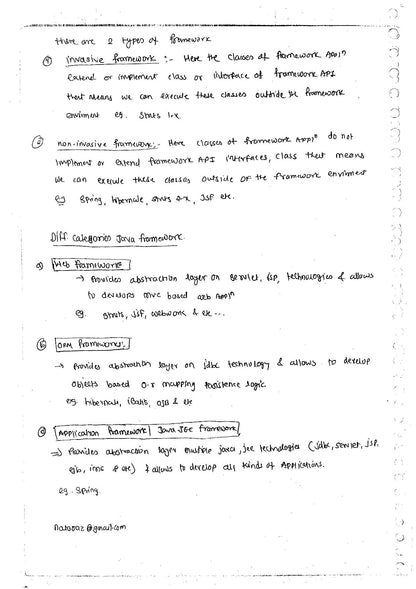 there are 2 types of framework
① invasive framework :- Here the classes of framework Appln
extend or implement class or interface of framework API
that means we can execute these classes outside the framework
enviment eg. struts 1.x
② non-invasive framework:- Here classes of framework Appln do not
implement or extend framework API interfaces, class that means
we can execute these classes outside of the framework enviment
eg Spring, hibernate, struts 2.x, JSF etc.
Diff categories Java framework.
a) Web framework
→ Provides abstraction layer on servlet, jsp, technologies & allows
to develops mvc based web Appln
eg. struts, jsf, webwork & etc...
b) ORM framework:-
→ Provides abstraction layer on jdbc technology & allows to develop
objects based o-r mapping persistence logic
eg hibernate, ibatis, OJB & etc
c) Application framework/ Java JEE framework
⇒ Provides abstraction layer multiple java, jee technologies (jdbc, servlet, jsp,
ejb, jms & etc) & allows to develop all kinds of Applications.
eg. Spring
nataraz@gmail.com